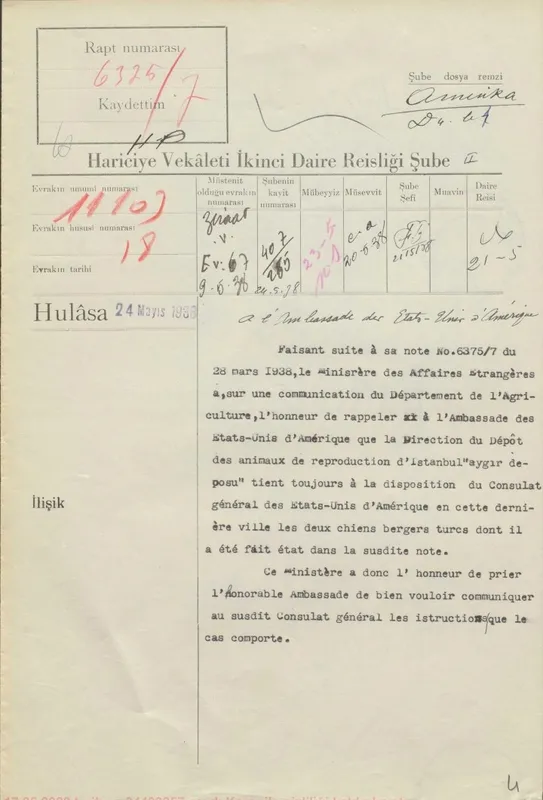 Rapt numarası
6325/7
Kaydettim
Şube dosya remzi
Amerika
Hariciye Vekâleti İkinci Daire Reisliği Şube II
Evrakın umumî numarası
11103
Evrakın hususî numarası
18
Evrakın tarihi
Müstenit olduğu evrakın numarası
Ziraat
.V.
Ev. 67
9-5-38
Şubenin kayit numarası
407
265
24.5.38
Mübeyyiz
23-5
Müsevvit
20-5-38
Şube Şefi
21/5/38
Muavin
Daire Reisi
21-5
Hulâsa
24 Mayıs 1938
A l'Ambassade des Etats-Unis d'Amérique
Faisant suite à sa note No.6375/7 du
28 mars 1938,le Minisrère des Affaires Etrangères
a,sur une communication du Département de l'Agri-
culture,l'honneur de rappeler à l'Ambassade des
Etats-Unis d'Amérique que la Direction du Dépôt
des animaux de reproduction d'Istanbul"aygır de-
posu" tient toujours à la disposition du Consulat
général des Etats-Unis d'Amérique en cette derni-
ère ville les deux chiens bergers turcs dont il
a été fait état dans la susdite note.
Ce Ministère a donc l' honneur de prier
l'Honorable Ambassade de bien vouloir communiquer
au susdit Consulat général les istructions que le
cas comporte.
İlişik
4